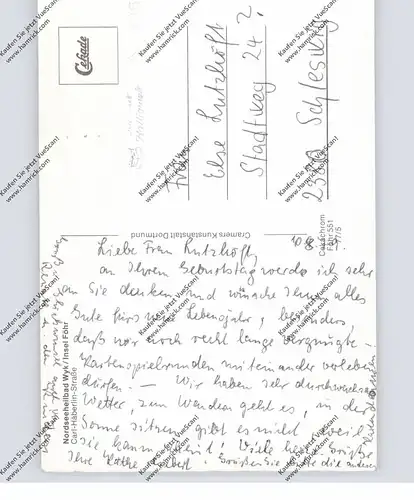 Cekade
Frau
Else Lutzhöft
Stadtweg 24 ?
2380 Schleswig
Cramers Kunstanstalt Dortmund
Cekachrom
Föhr 551
Nordseeheilbad Wyk / Insel Föhr
Carl-Häberlin-Straße
Liebe Frau Lutzhöft,
an Ihrem Geburtstag werde ich sehr
an Sie denken und wünsche Ihnen alles
Gute fürs neue Lebensjahr, besonders
daß wir noch recht lange vergnügte
Kartenspielrunden miteinander erleben
dürfen. — Wir haben sehr durchwachsenes
Wetter, zum Wandern geht es, in der
Sonne sitzen gibt es nicht, weil
sie kaum scheint! Viele herzl. Grüße
Ihre Käthe Grüßen Sie bitte die anderen
Kaufen Sie jetzt VueScan!
www.hamrick.com